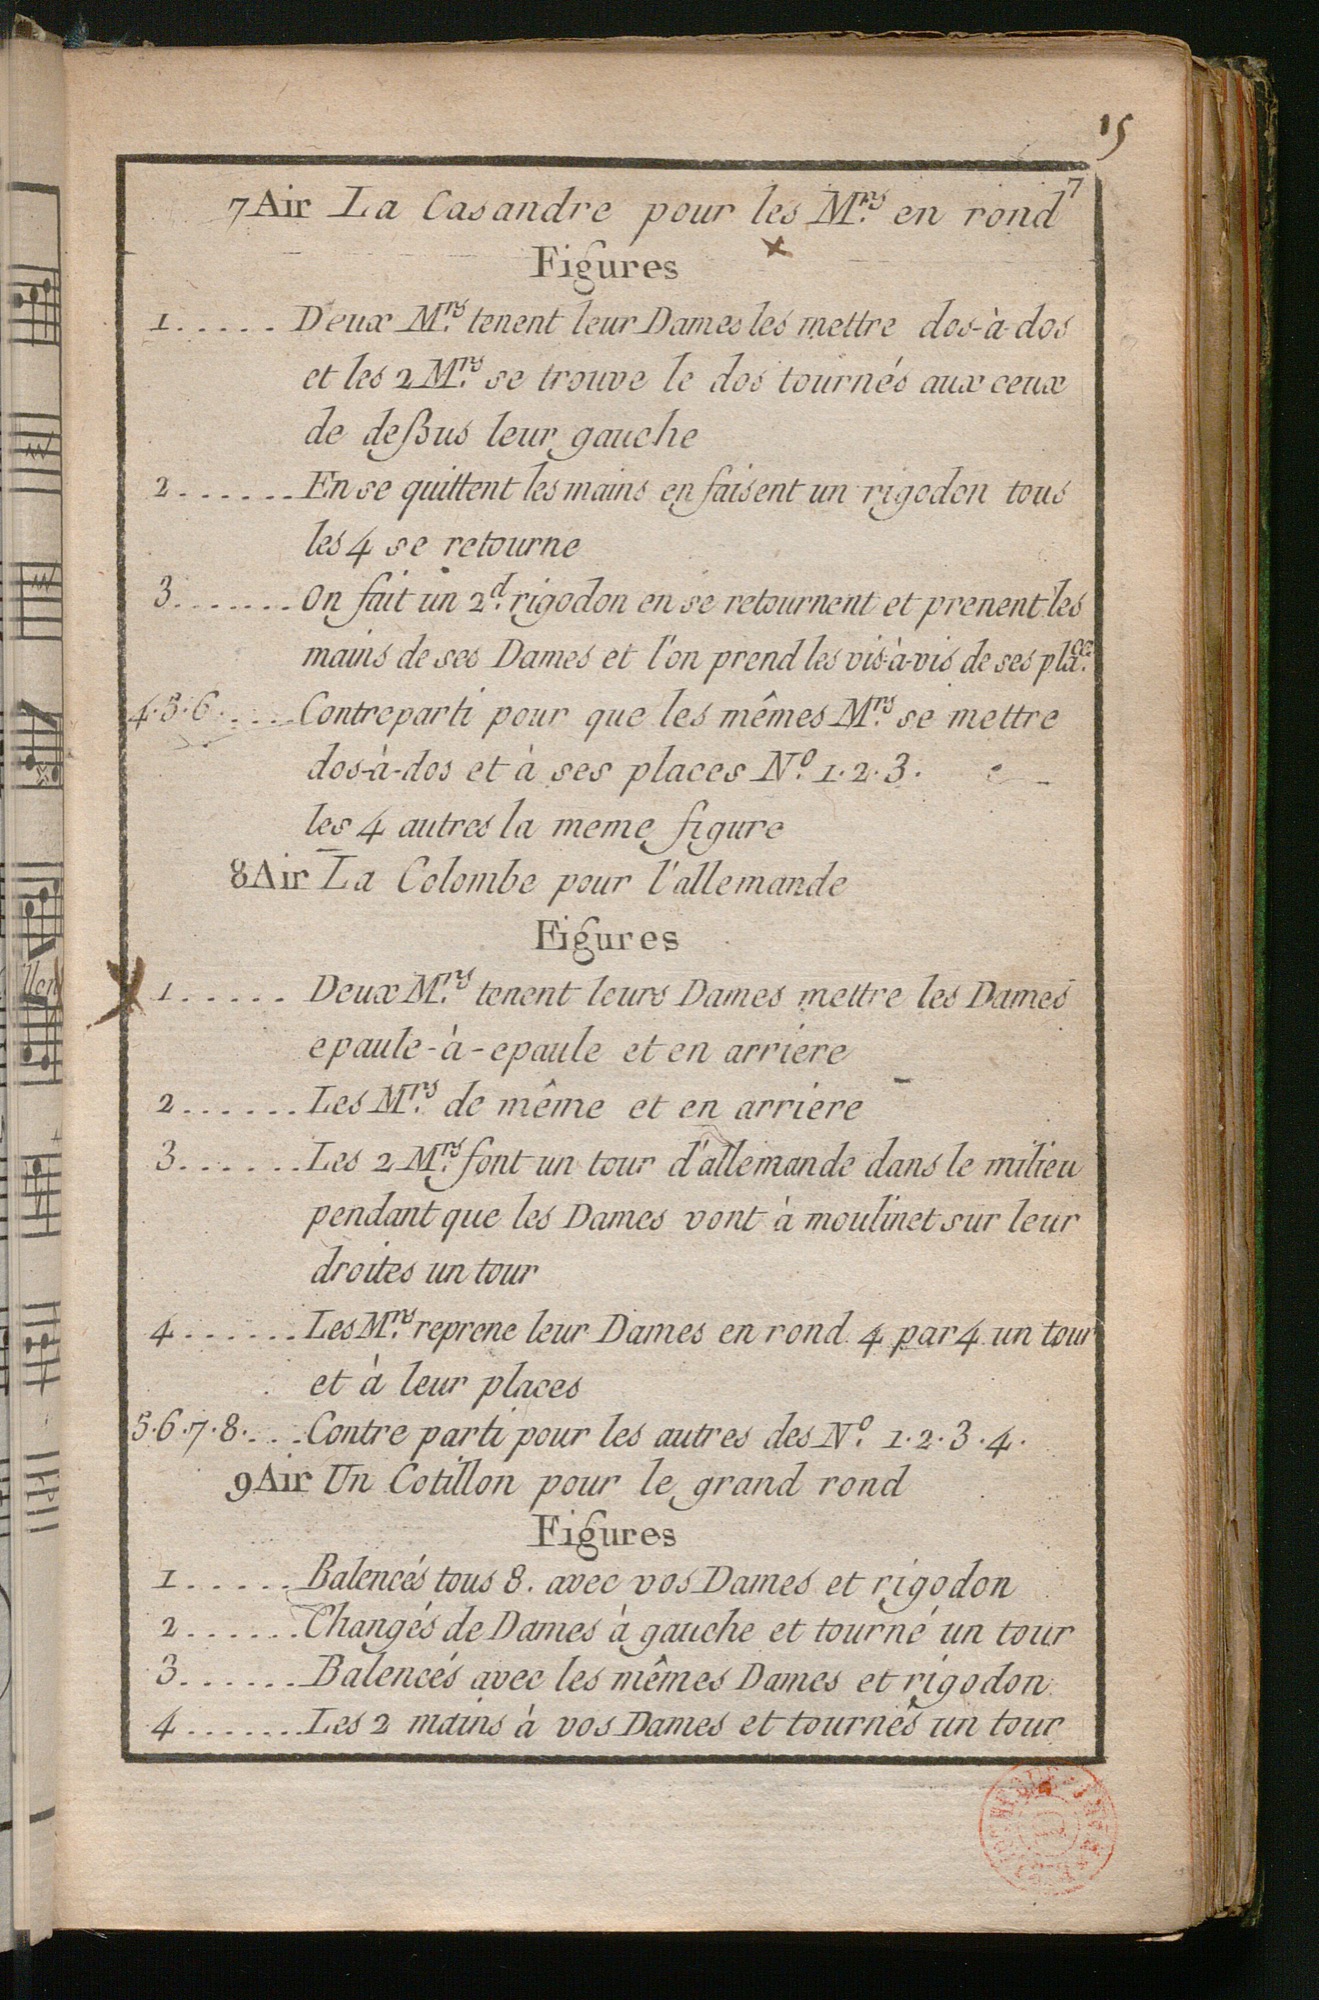 15
7
7 Air La Casandre pour les Mrs. en rond
Figures
1..... Deux Mrs. tenent leur Dames les mettre dos-à-dos
et les 2 Mrs. se trouve le dos tournés aux ceux
de deßus leur gauche
2...... En se quittent les mains en faisent un rigodon tous
les 4 se retourne
3....... On fait un 2d. rigodon en se retournent et prenent les
mains de ses Dames et l'on prend les vis-à-vis de ses place.
4.5.6..... Contreparti pour que les mêmes Mrs. se mettre
dos-à-dos et à ses places No. 1.2.3.
les 4 autres la meme figure
8 Air La Colombe pour l'allemande
Figures
1..... Deux Mrs. tenent leurs Dames mettre les Dames
epaule-à-epaule et en arriere
2...... Les Mrs. de même et en arriere
3...... Les 2 Mrs. font un tour d'allemande dans le milieu
pendant que les Dames vont à moulinet sur leur
droites un tour
4...... Les Mrs. reprene leur Dames en rond 4 par 4 un tour
et à leur places
5.6.7.8.... Contre parti pour les autres des No. 1.2.3.4.
9 Air Un Cotillon pour le grand rond
Figures
1..... Balencés tous 8. avec vos Dames et rigodon
2...... Changés de Dames à gauche et tourné un tour
3...... Balencés avec les mêmes Dames et rigodon
4....... Les 2 mains à vos Dames et tournés un tour